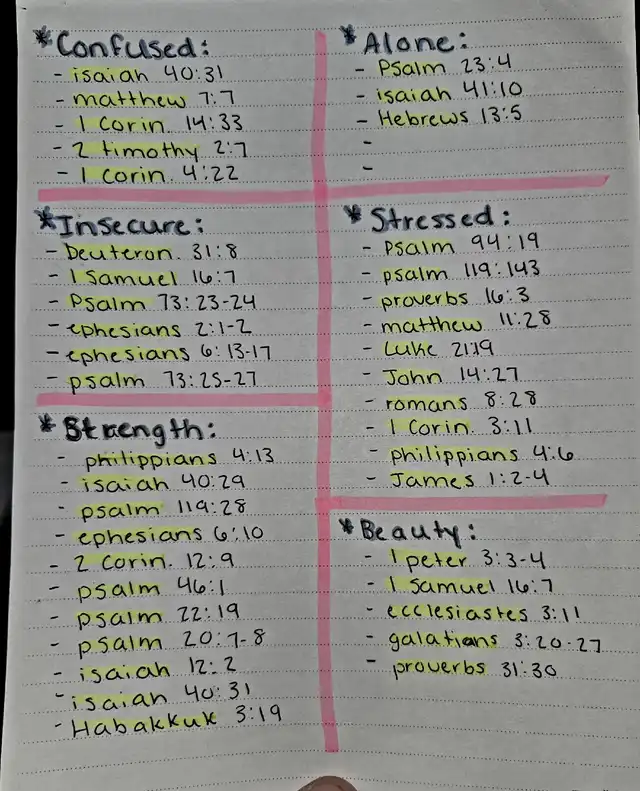 *Confused:
- isaiah 40:31
- matthew 7:7
- 1 Corin. 14:33
- 2 timothy 2:7
- 1 Corin. 4:22
*Insecure:
- Deuteron. 31:8
- 1 Samuel 16:7
- Psalm 73:23-24
- ephesians 2:1-2
- ephesians 6:13-17
- psalm 73:25-27
*Strength:
- philippians 4:13
- isaiah 40:29
- psalm 119:28
- ephesians 6:10
- 2 Corin. 12:9
- psalm 46:1
- psalm 22:19
- psalm 20:7-8
- isaiah 12:2
- isaiah 40:31
- Habakkuk 3:19
*Alone:
- Psalm 23:4
- isaiah 41:10
- Hebrews 13:5
-
-
*Stressed:
- Psalm 94:19
- psalm 119:143
- proverbs 16:3
- matthew 11:28
- Luke 21:19
- John 14:27
- romans 8:28
- 1 Corin. 3:11
- philippians 4:6
- James 1:2-4
*Beauty:
- 1 peter 3:3-4
- 1 Samuel 16:7
- ecclesiastes 3:11
- galatians 3:20-27
- proverbs 31:30